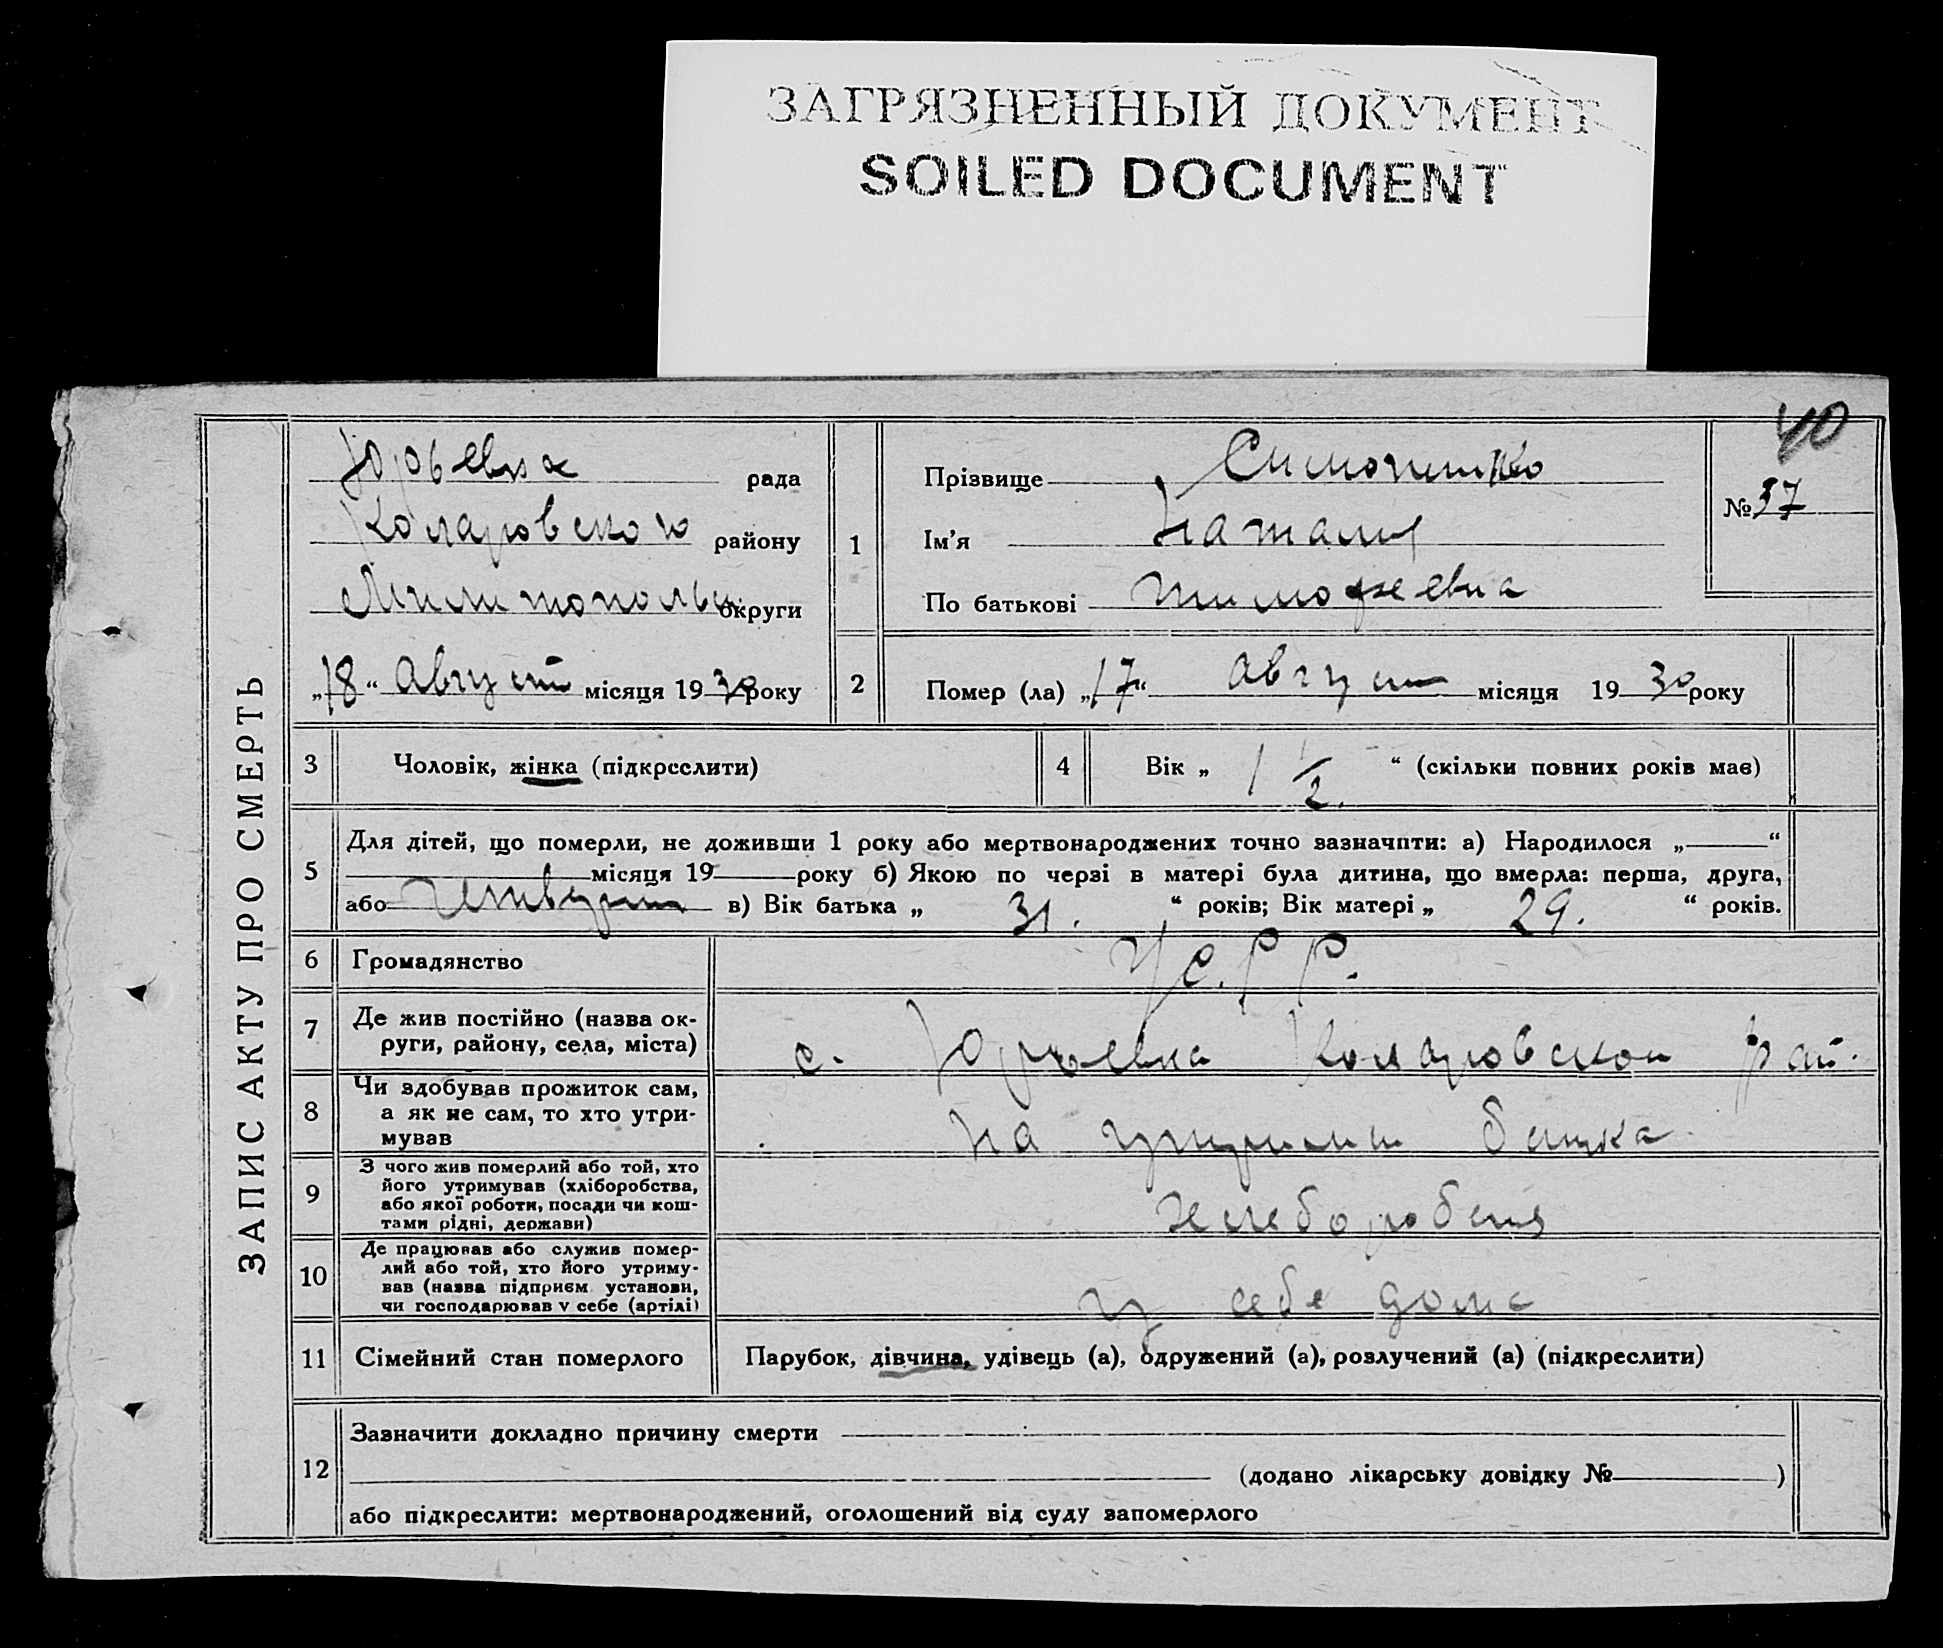 ЗАГРЯЗНЕННЫЙ ДОКУМЕНТ
SOILED DOCUMENT
40
ЗАПИС АКТУ ПРО СМЕРТЬ
Юрьевка рада
Коларовского району
Мелитопольс округи
„18“ Август місяця 1930 року
1
Прізвище
Ім'я Наталия
По батькові Тимофеевна
№ 37
2 Помер (ла) „17“ Август місяця 1930 року
3 Чоловік, жінка (підкреслити)
4 Вік „ 1 1/2 “ (скільки повних років має)
5 Для дітей, що померли, не доживши 1 року або мертвонароджених точно зазначити: а) Народилося „ “
місяця 19 року б) Якою по черзі в матері була дитина, що вмерла: перша, друга,
або в) Вік батька „ 31. “ років; Вік матері „ 29. “ років.
6 Громадянство У.С.Р.Р.
7 Де жив постійно (назва ок-
руги, району, села, міста)
с. Юрьевка Коларовскои рай.
8 Чи здобував прожиток сам,
а як не сам, то хто утри-
мував
на батька
9 З чого жив померлий або той, хто
його утримував (хліборобства,
або якої роботи, посади чи кош-
тами рідні, держави)
10 Де працював або служив помер-
лий або той, хто його утриму-
вав (назва підприєм. установи,
чи господарював у себе (артілі)
у себе дома
11 Сімейний стан померлого Парубок, дівчина, удівець (а), одружений (а), розлучений (а) (підкреслити)
12 Зазначити докладно причину смерти
(додано лікарську довідку № )
або підкреслити: мертвонароджений, оголошений від суду запомерлого